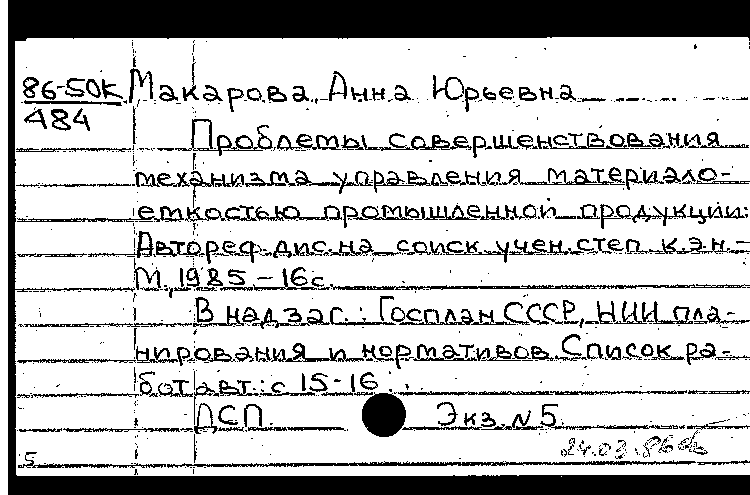 86-50К Макарова, Анна Юрьевна
484
Проблемы совершенствования
механизма управления материало-
емкостью промышленной продукции:
Автореф. дис. на соиск. учен. степ. к.э.н. -
М., 1985. - 16 с.
В надзаг.: Госплан СССР, НИИ пла-
нирования и нормативов. Список ра-
бот авт.: с 15-16.
ДСП. Экз. N 5.
24.03.86
5